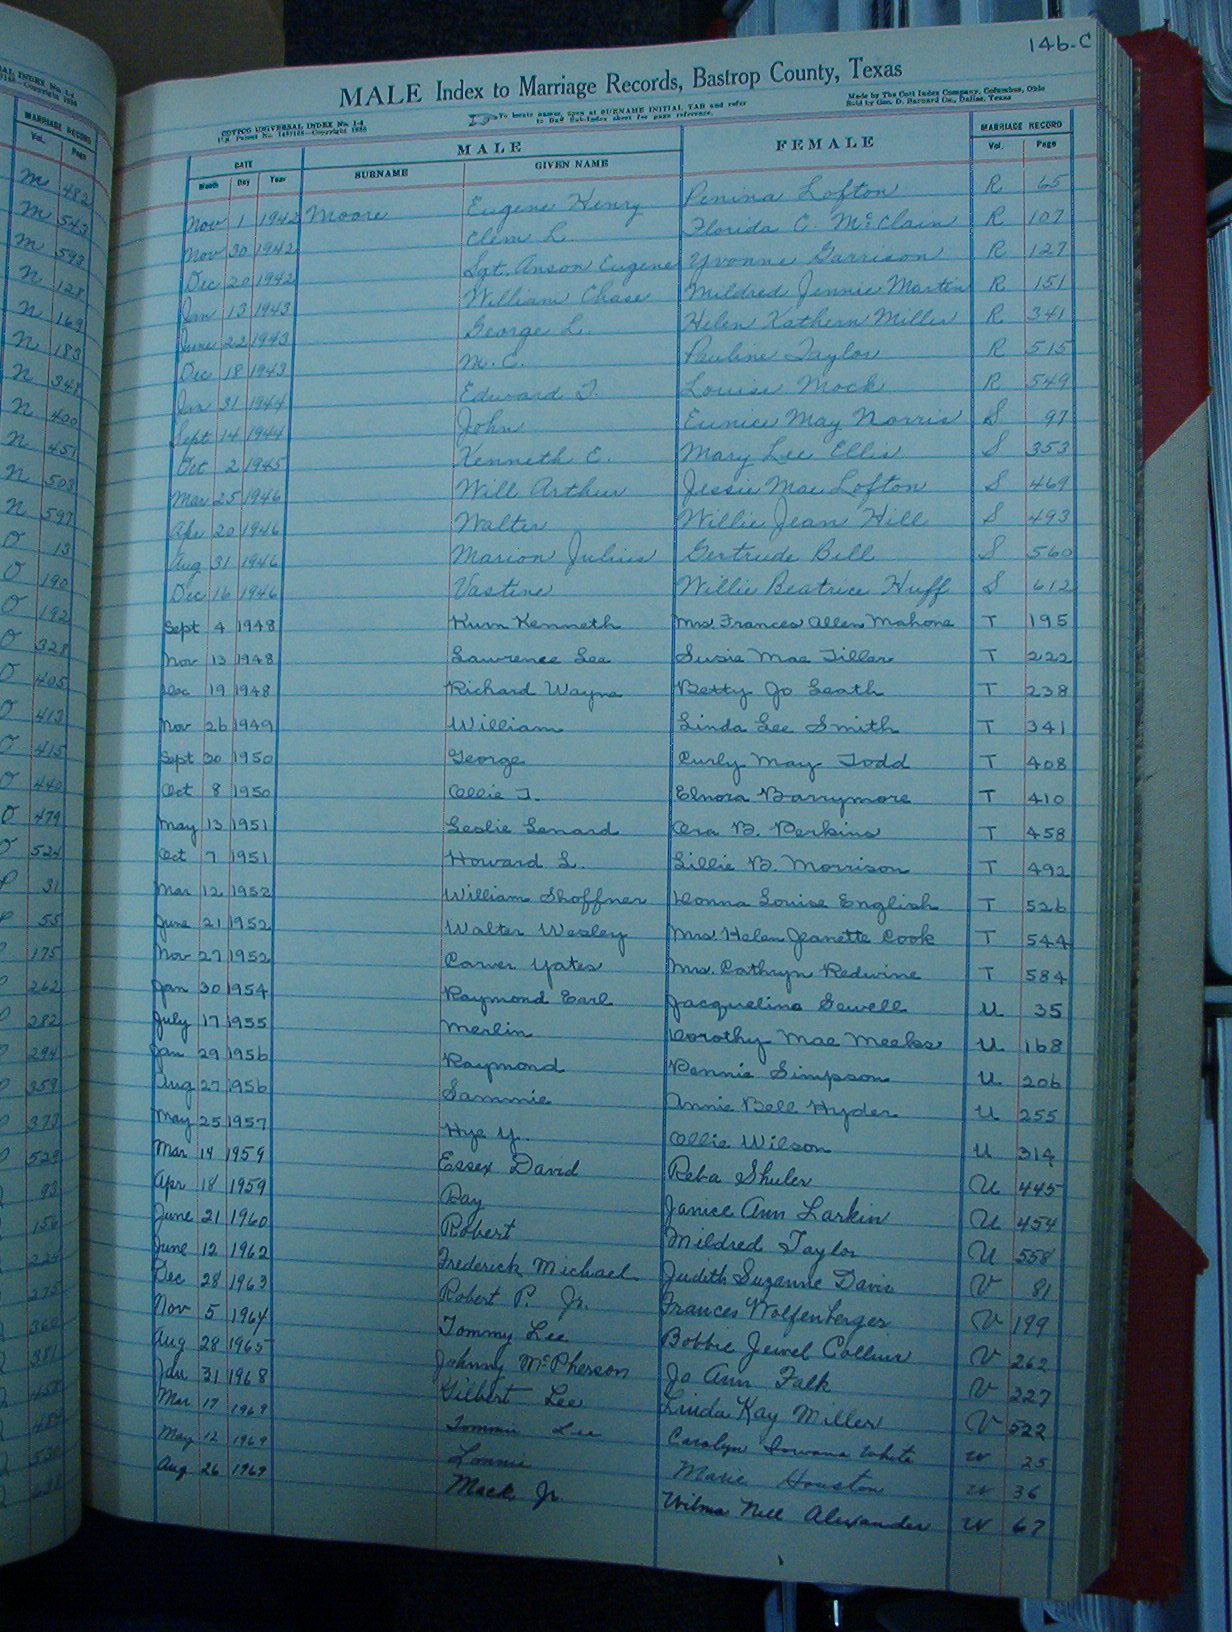 146-C
MALE Index to Marriage Records, Bastrop County, Texas
COTTCO UNIVERSAL INDEX No. 1-4
U.S. Patent No. 1481168—Copyright 1936
To locate names, open at SURNAME INITIAL TAB and refer
to Dag Sub-Index sheet for page reference.
Made by The Cott Index Company, Columbus, Ohio
Sold by Geo. D. Barnard Co., Dallas, Texas
DATE MALE FEMALE MARRIAGE RECORD
Month Day Year SURNAME GIVEN NAME Vol. Page
Nov 1 1942 Moore Eugene Henry Penina Lofton R 65
Nov 30 1942 Clem L. Florida C. McClain R 107
Dec 20 1942 Sgt. Anson Eugene Yvonne Garrison R 127
Jan 13 1943 William Chase Mildred Jennie Martin R 151
June 22 1943 George L. Helen Kathern Miller R 341
Dec 18 1943 M. C. Pauline Taylor R 515
Jan 31 1944 Edward T. Louise Mock R 549
Sept 14 1944 John Eunice May Norris S 97
Oct 2 1945 Kenneth E. Mary Lee Ellis S 353
Mar 25 1946 Will Arthur Jessie Mae Lofton S 469
Apr 20 1946 Walter Willie Jean Hill S 493
Aug 31 1946 Marion Julius Gertrude Bell S 560
Dec 16 1946 Vastine Willie Beatrice Huff S 612
Sept 4 1948 Kurn Kenneth Mrs Frances Allen Mahone T 195
Nov 13 1948 Lawrence Lee Susie Mae Tiller T 222
Dec 19 1948 Richard Wayne Betty Jo Leath T 238
Nov 26 1949 William Linda Lee Smith T 341
Sept 30 1950 George Curly May Todd T 408
Oct 8 1950 Ollie T. Elnora Barrymore T 410
May 13 1951 Leslie Lenard Ora B. Perkins T 458
Oct 7 1951 Howard L. Lillie B. Morrison T 492
Mar 12 1952 William Shoffner Donna Louise English T 526
June 21 1952 Walter Wesley Mrs Helen Jeanette Cook T 544
Nov 27 1952 Carver Yates Mrs. Cathryn Redwine T 584
Jan 30 1954 Raymond Earl Jacqueline Sewell U 35
July 17 1955 Merlin Dorothy Mae Meeks U 168
Jan 29 1956 Raymond Pennie Simpson U 206
Aug 27 1956 Sammie Annie Bell Hyder U 255
May 25 1957 Hye Y. Ollie Wilson U 314
Mar 14 1959 Essex David Reba Shuler U 445
Apr 18 1959 Ray Janice Ann Larkin U 454
June 21 1960 Robert Mildred Taylor U 558
June 12 1962 Frederick Michael Judith Suzanne Davis V 81
Dec 28 1963 Robert P. Jr. Frances Wolfenberger V 199
Nov 5 1964 Tommy Lee Bobbie Jewel Collins V 262
Aug 28 1965 Johnny McPherson Jo Ann Falk V 327
Jan 31 1968 Gilbert Lee Linda Kay Miller V 522
Mar 17 1969 Tommie Lee Carolyn White W 25
May 12 1969 Lonnie Marie Houston W 36
Aug 26 1969 Mack Jr. Wilma Nell Alexander W 67
MARRIAGE RECORD
Vol. Page
M 482
M 543
M 593
N 128
N 169
N 183
N 348
N 400
N 451
N 503
N 597
O 13
O 190
O 192
O 328
O 405
O 412
O 415
O 440
O 479
O 524
P 31
P 55
175
262
282
294
359
372
529
93
156